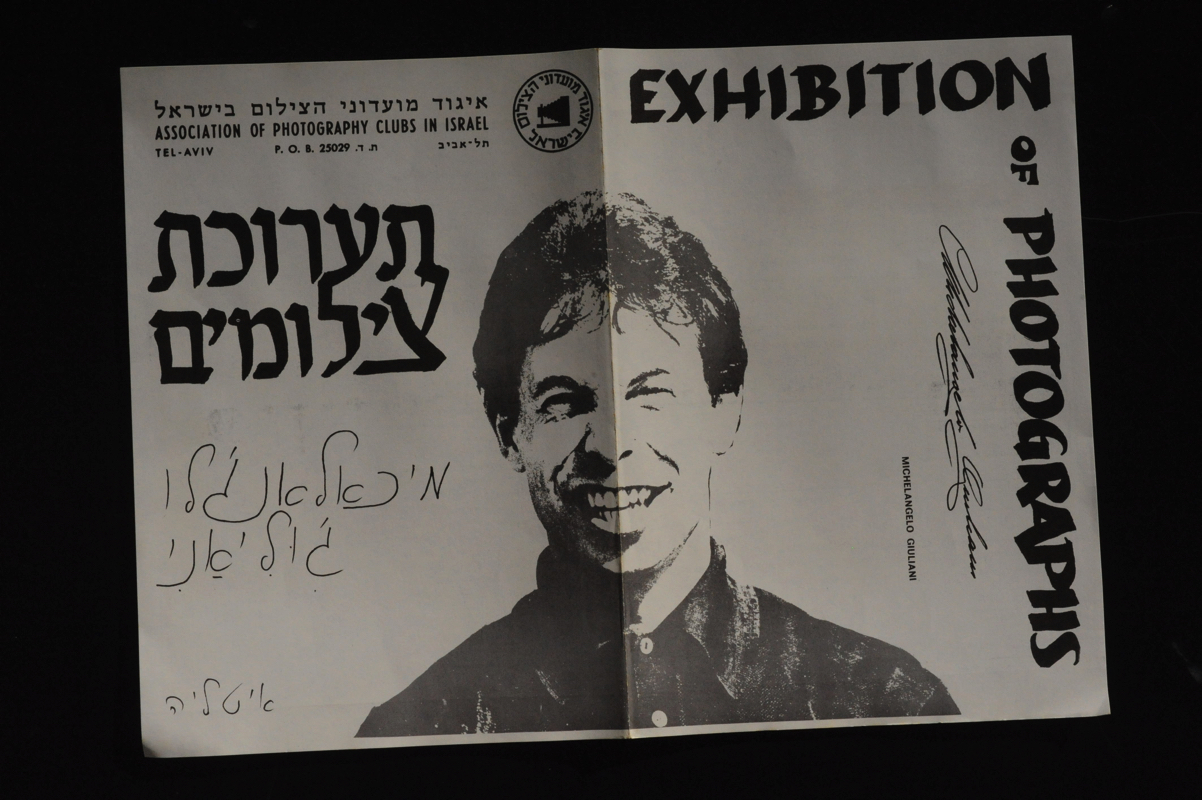 איגוד מועדוני הצילום בישראל
ASSOCIATION OF PHOTOGRAPHY CLUBS IN ISRAEL
TEL-AVIV P. O. B. 25029 ת. ד. תל-אביב
איגוד מועדוני הצילום בישראל
תערוכת
צילומים
מיכאלאנג'לו
ג'וּלִיאַנִי
איטליה
EXHIBITION
OF
PHOTOGRAPHS
Michelangelo Giuliani
MICHELANGELO GIULIANI